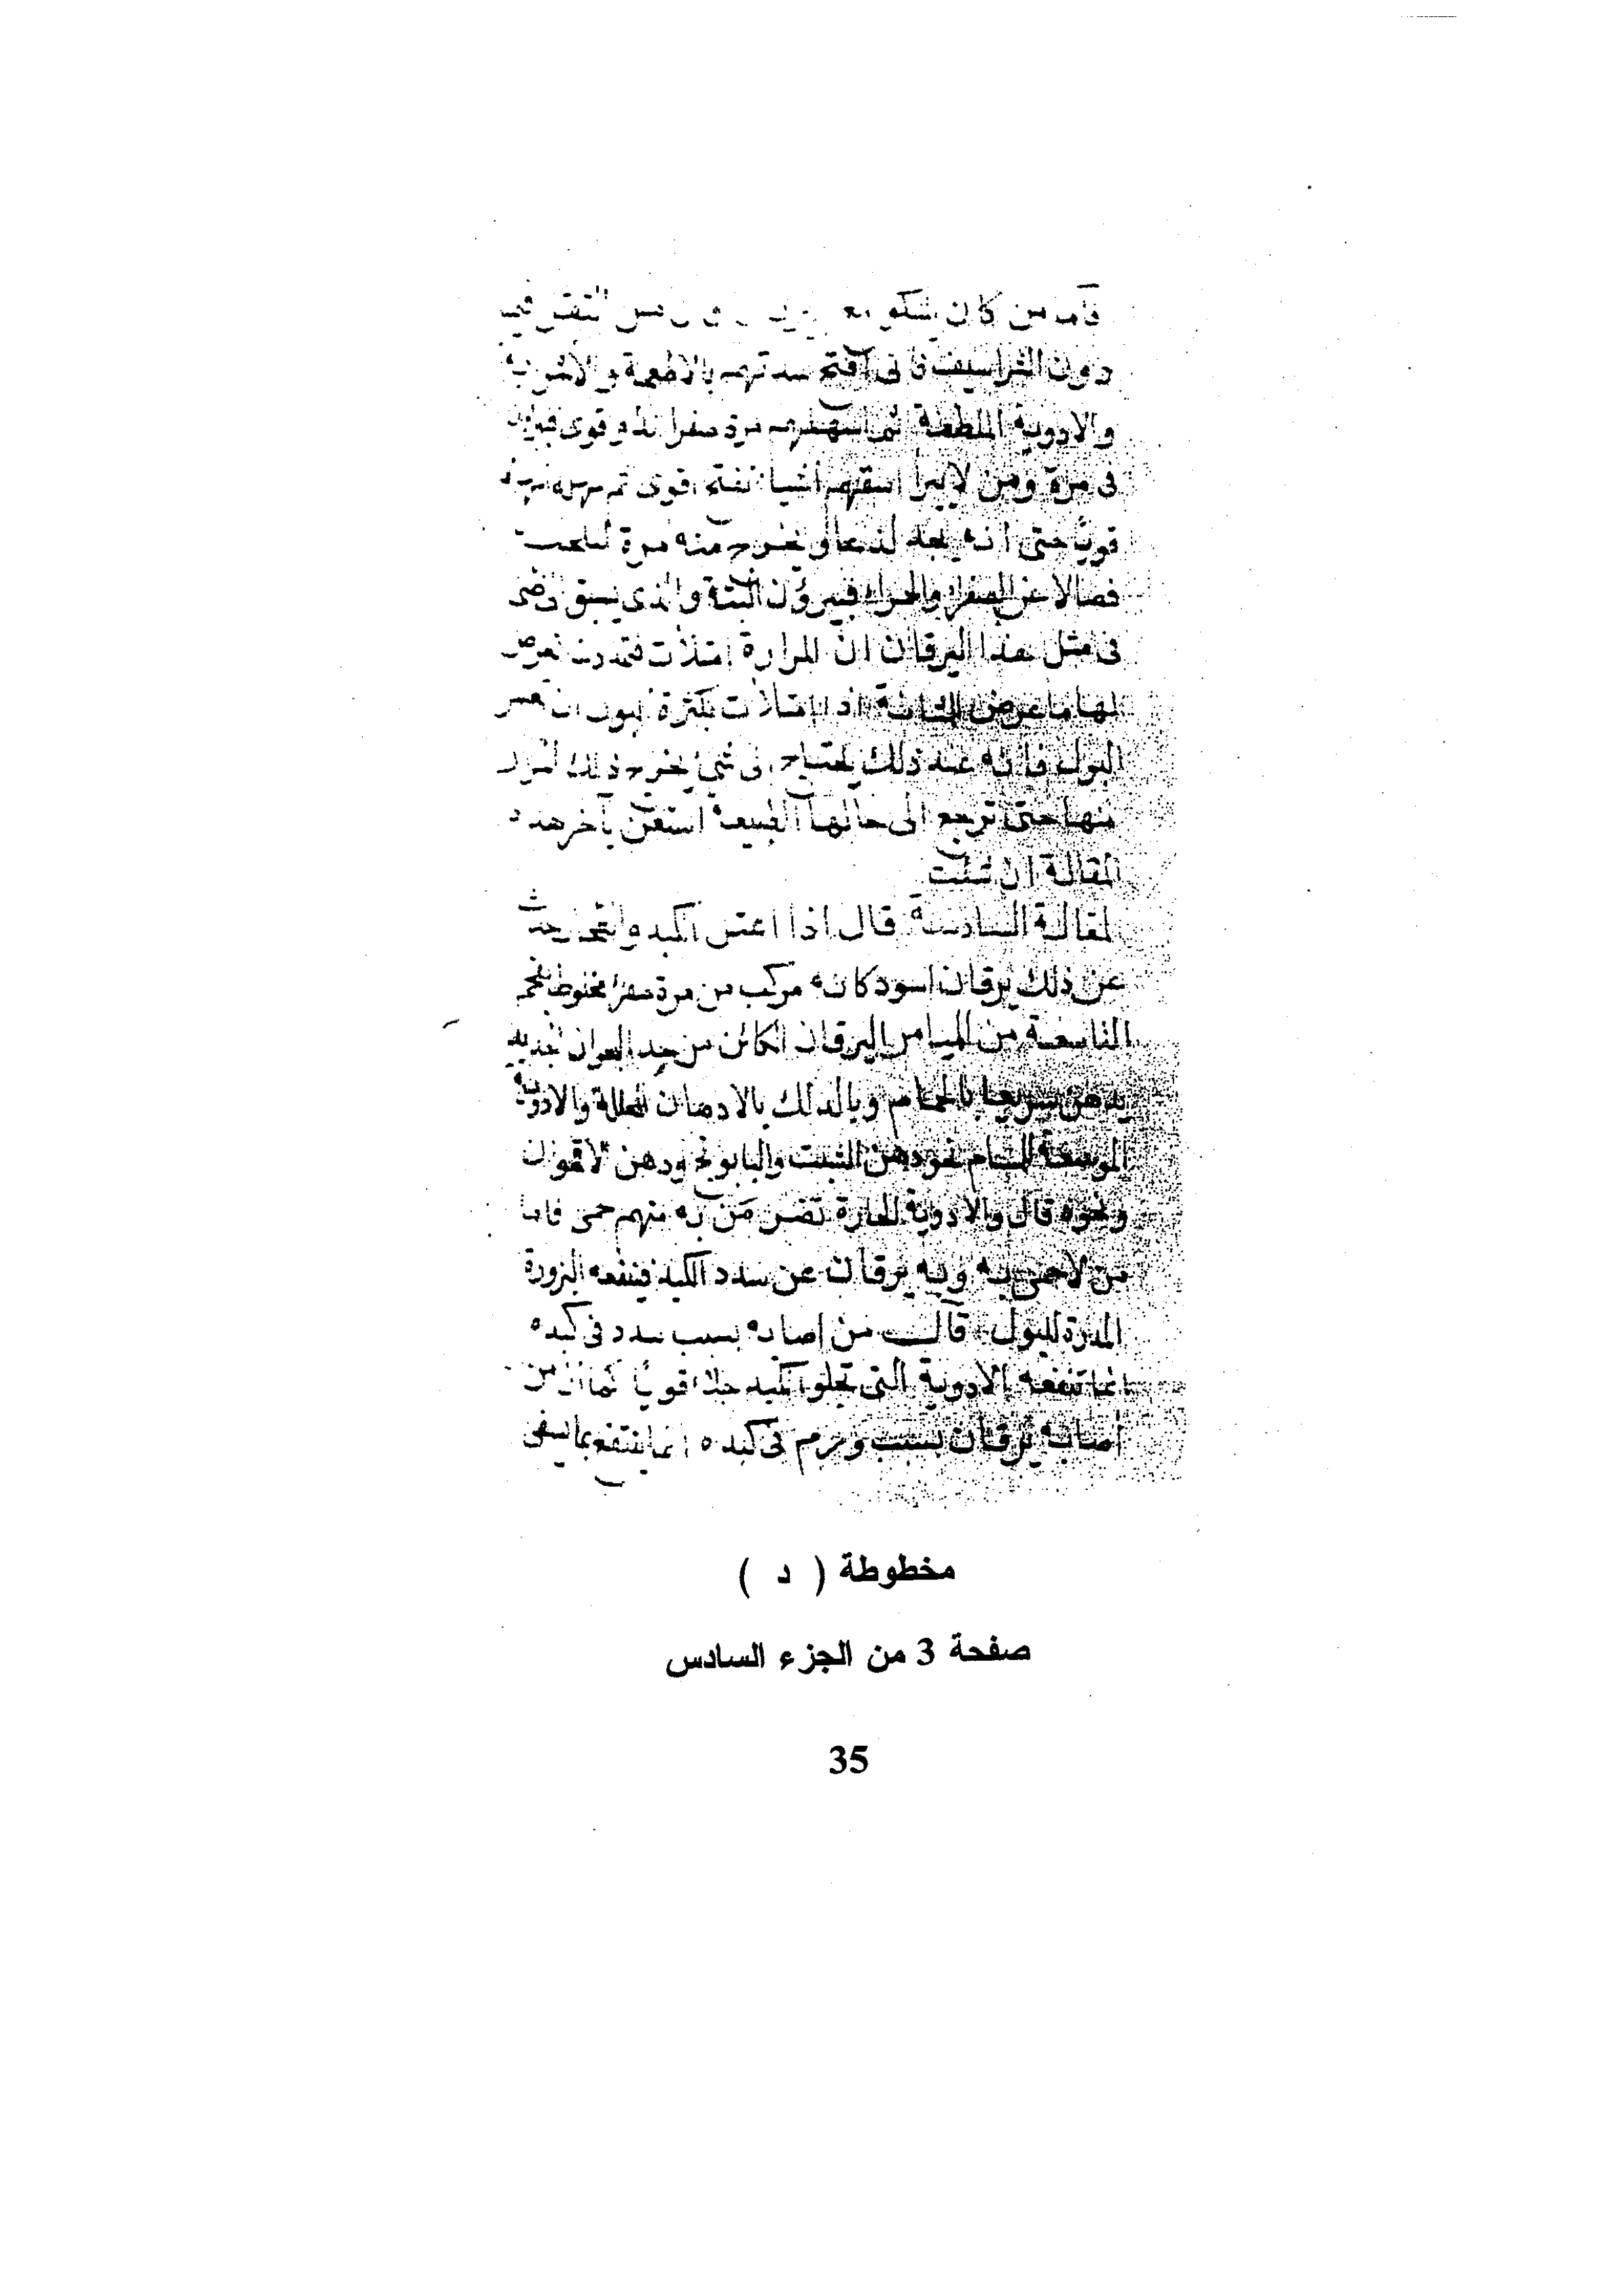 فأما من كان يشكو مع الثقل فيما
دون الشراسيف فانى افتح سددهم بالاطعمة والاشربة
والادوية الملطفة ثم اسهلهم مرة صفرا بدواء قوى فيبرؤن
فى مرة ومن لا يبرا اسقيهم اشيا تفتح اقوى ثم مسهلا
قويا حتى انه يجد لذعا ويخرج منه مرة
فضلا عن الصفرا والحمراء فيبرؤن البتة والذى يسبق الى ظنى
فى مثل هذا اليرقان ان المرارة امتلأت فتمددت فعرض
لها ما عرض للمثانة اذا امتلأت بكثرة البول ان يعسر
البول فانه عند ذلك يحتاج الى شئ يخرج ذلك المرار
منها حتى ترجع الى حالها الطبيعية استعن بآخر هذه
المقالة ان شئت
المقالة السادسة قال اذا اعتل الكبد والطحال حدث
عن ذلك يرقان اسود كانه مركب من مرة صفرا مخلوطة بفحم
التاسعة من الميامر اليرقان الكائن من جيد البحران
يذهب سريعا بالحمام وبالدلك بالادهان المحللة والادوية
الموسعة للمسام نحو دهن الشبت والبابونج ودهن الاقحوان
ونحوه قال والادوية الحارة تضر من به منهم حمى فاما
من لا حمى به وبه يرقان عن سدد الكبد فينفعه البزورة
المدرة للبول قال من اصابه بسبب سدد فى كبده
انما تنفعه الادوية التى تجلو الكبد جلاء قويا كما ان من
اصابه يرقان بسبب ورم فى كبده انما ينتفع بما يشفى
مخطوطة ( د )
صفحة 3 من الجزء السادس
35